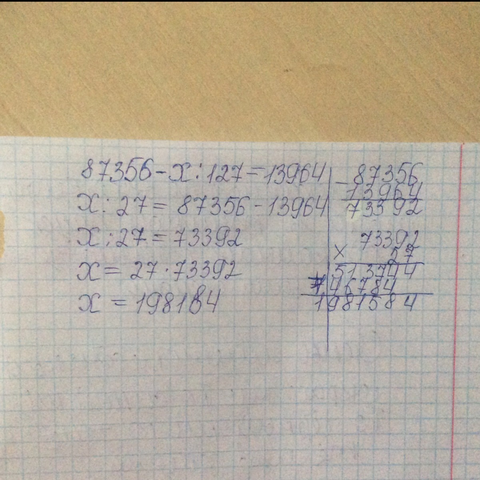 87356-x:127=13964
x:27=87356-13964
x:27=73392
x=27·73392
x=198184
-87356
13964
73392
73392
×
27
513744
146784
1981584